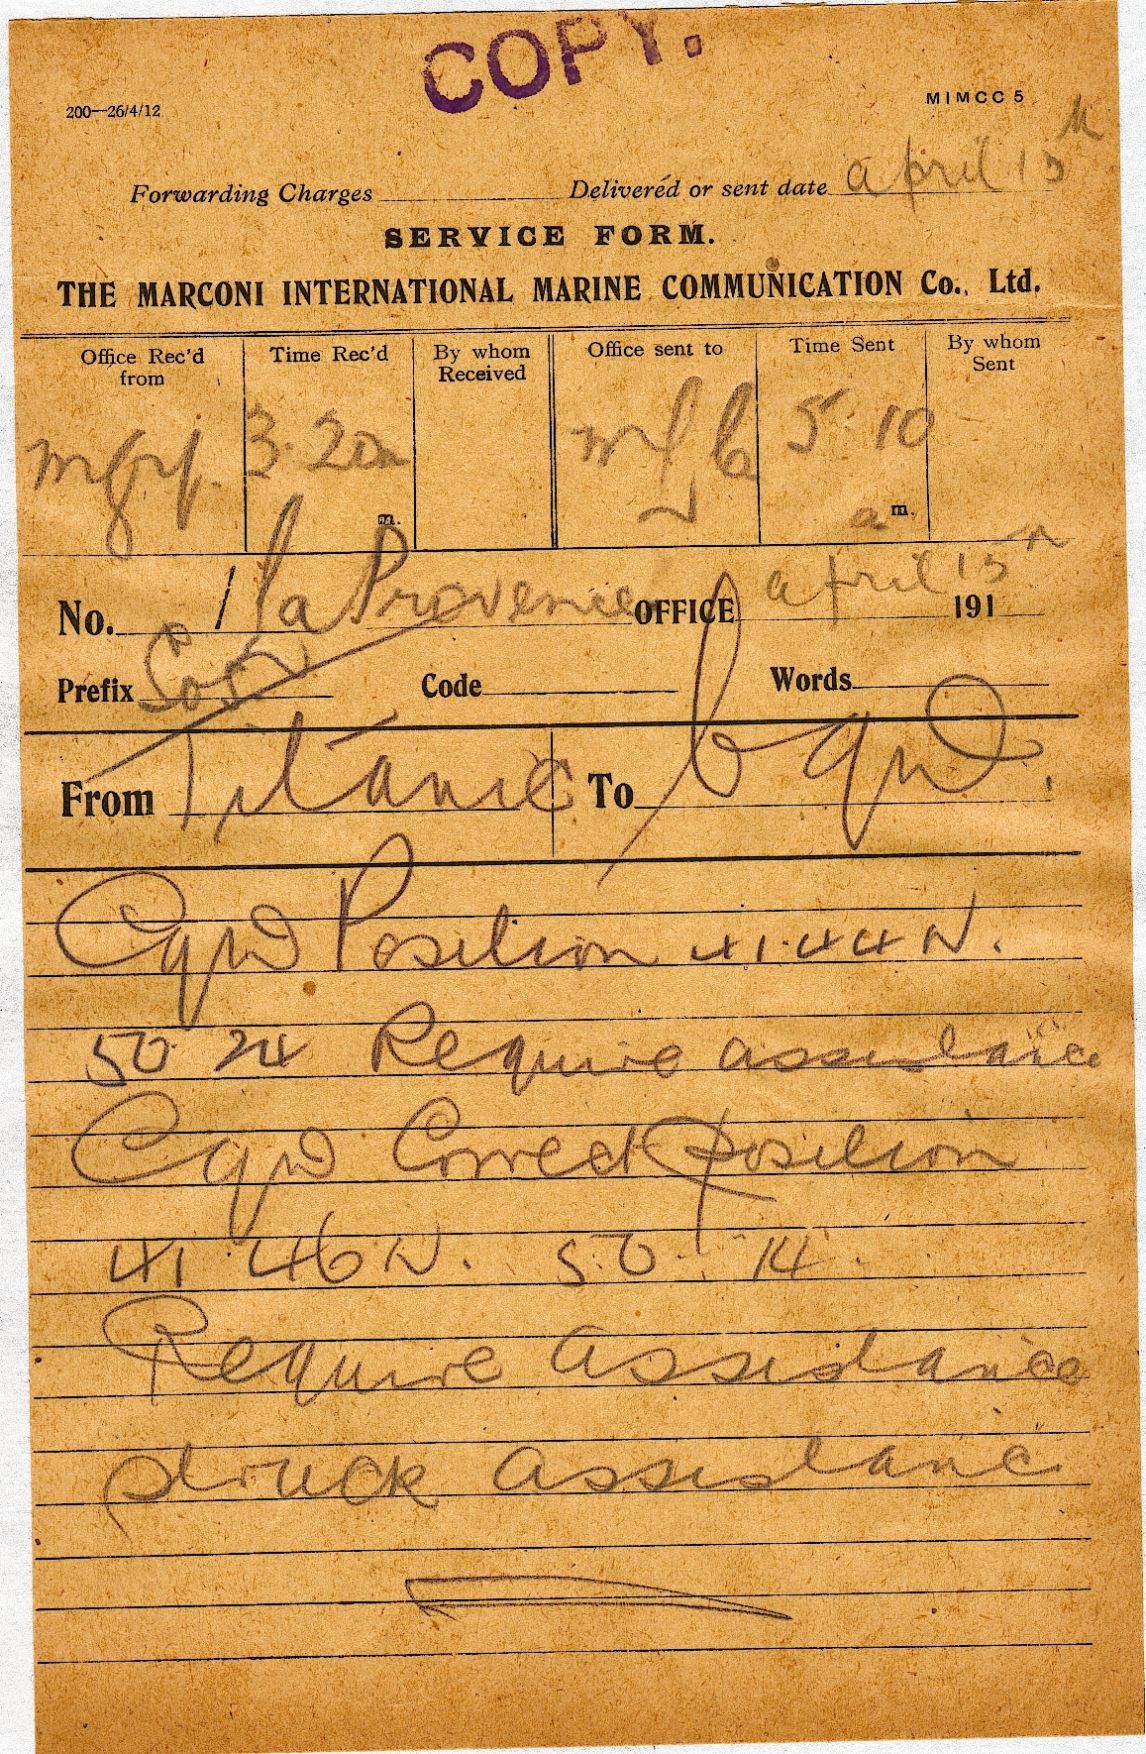 COPY.
200—26/4/12
MIMCC 5
Forwarding Charges Delivered or sent date april 15th
SERVICE FORM.
THE MARCONI INTERNATIONAL MARINE COMMUNICATION Co., Ltd.
Office Rec'd from
Time Rec'd
By whom Received
Office sent to
Time Sent
By whom Sent
3.20am
5.10
m.
a m.
No. 1 La Provence OFFICE april 15th 191
Prefix Sos Code Words
From Titanic To Cqd.
Cqd Position 41.44 N.
50 24 Require assistance
Cqd Correct position
41.46 N. 50.14.
Require assistance
struck assistanc